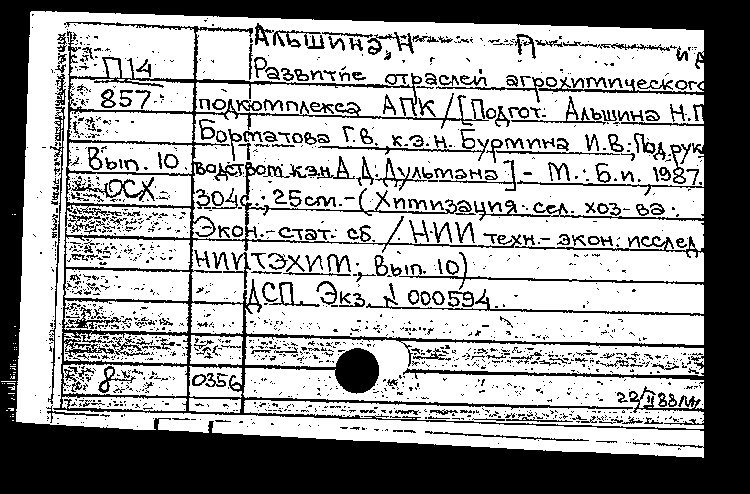 Альшина, Н П и д
П14 Развитие отраслей агрохимического
857 подкомплекса АПК / [Подгот. Альшина Н.П
Борматова Г.В., к.э.н. Бурмина И.В.; Под рук
Вып. 10 водством к.э.н А.Д. Дульмана] - М.: Б.и., 1987.
ОСХ 304с.; 25см. - (Химизация сел. хоз-ва:
Экон.-стат. сб. / НИИ техн.-экон. исслед.
НИИТЭХИМ; Вып. 10)
ДСП. Экз. № 000594
8 0356